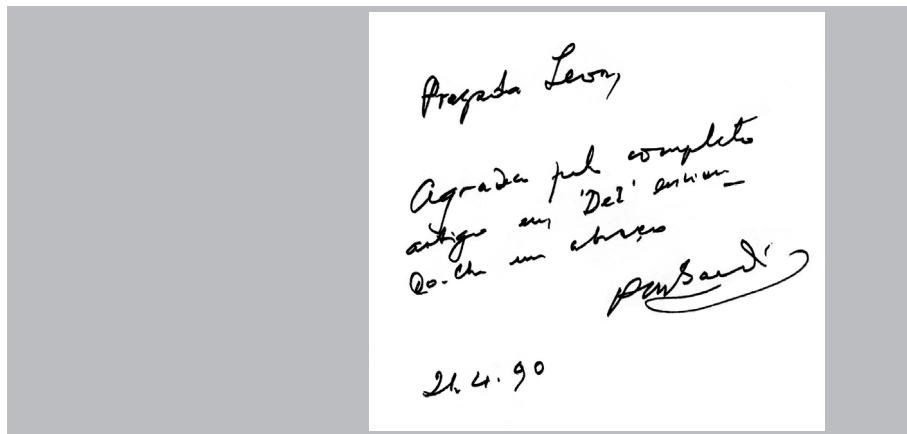 Prezada Leon,
Agradeço pelo completo
artigo em 'Dez' envian_
do-lhe um abraço
21.4.90